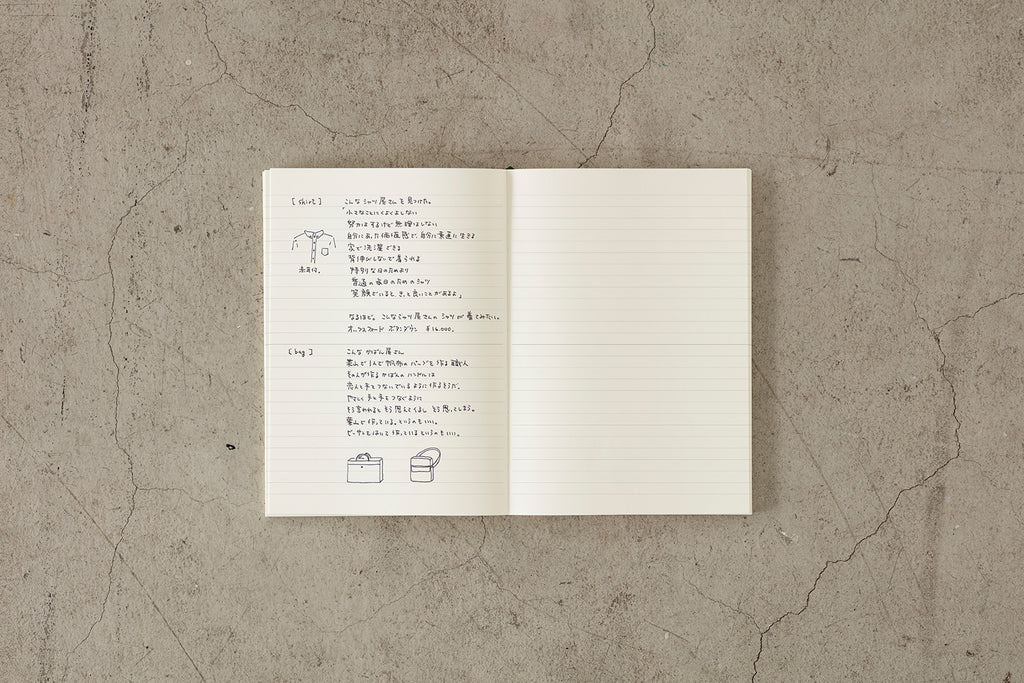 [ shirt ]
こんな シャツ 屋さん を 見つけた。
「小さなことにくよくよしない
努力はするけど 無理はしない
自分にあった価値感で、自分に素直に生きる
家で洗濯できる
背伸びしないで着られる
特別な日のためより
普通の毎日のためのシャツ
笑顔でいると、きっと良いことがあるよ」
赤耳付。
なるほど。こんなシャツ屋さんの シャツが 着てみたい。
オックスフォード ボタンダウン ¥16,000.
[ bag ]
こんな かばん屋さん
葉山で 1人で 帆布の バッグを 作る 職人
その人が作る かばんの ハンドルは
恋人と手をつないでいるように 作るそうだ。
やさしく 手と手を つなぐように
そう言われると そう思えてくるし そう思ってしまう。
葉山で 作っている。というのもいい。
ビーサンをはいて 作っているというのもいい。